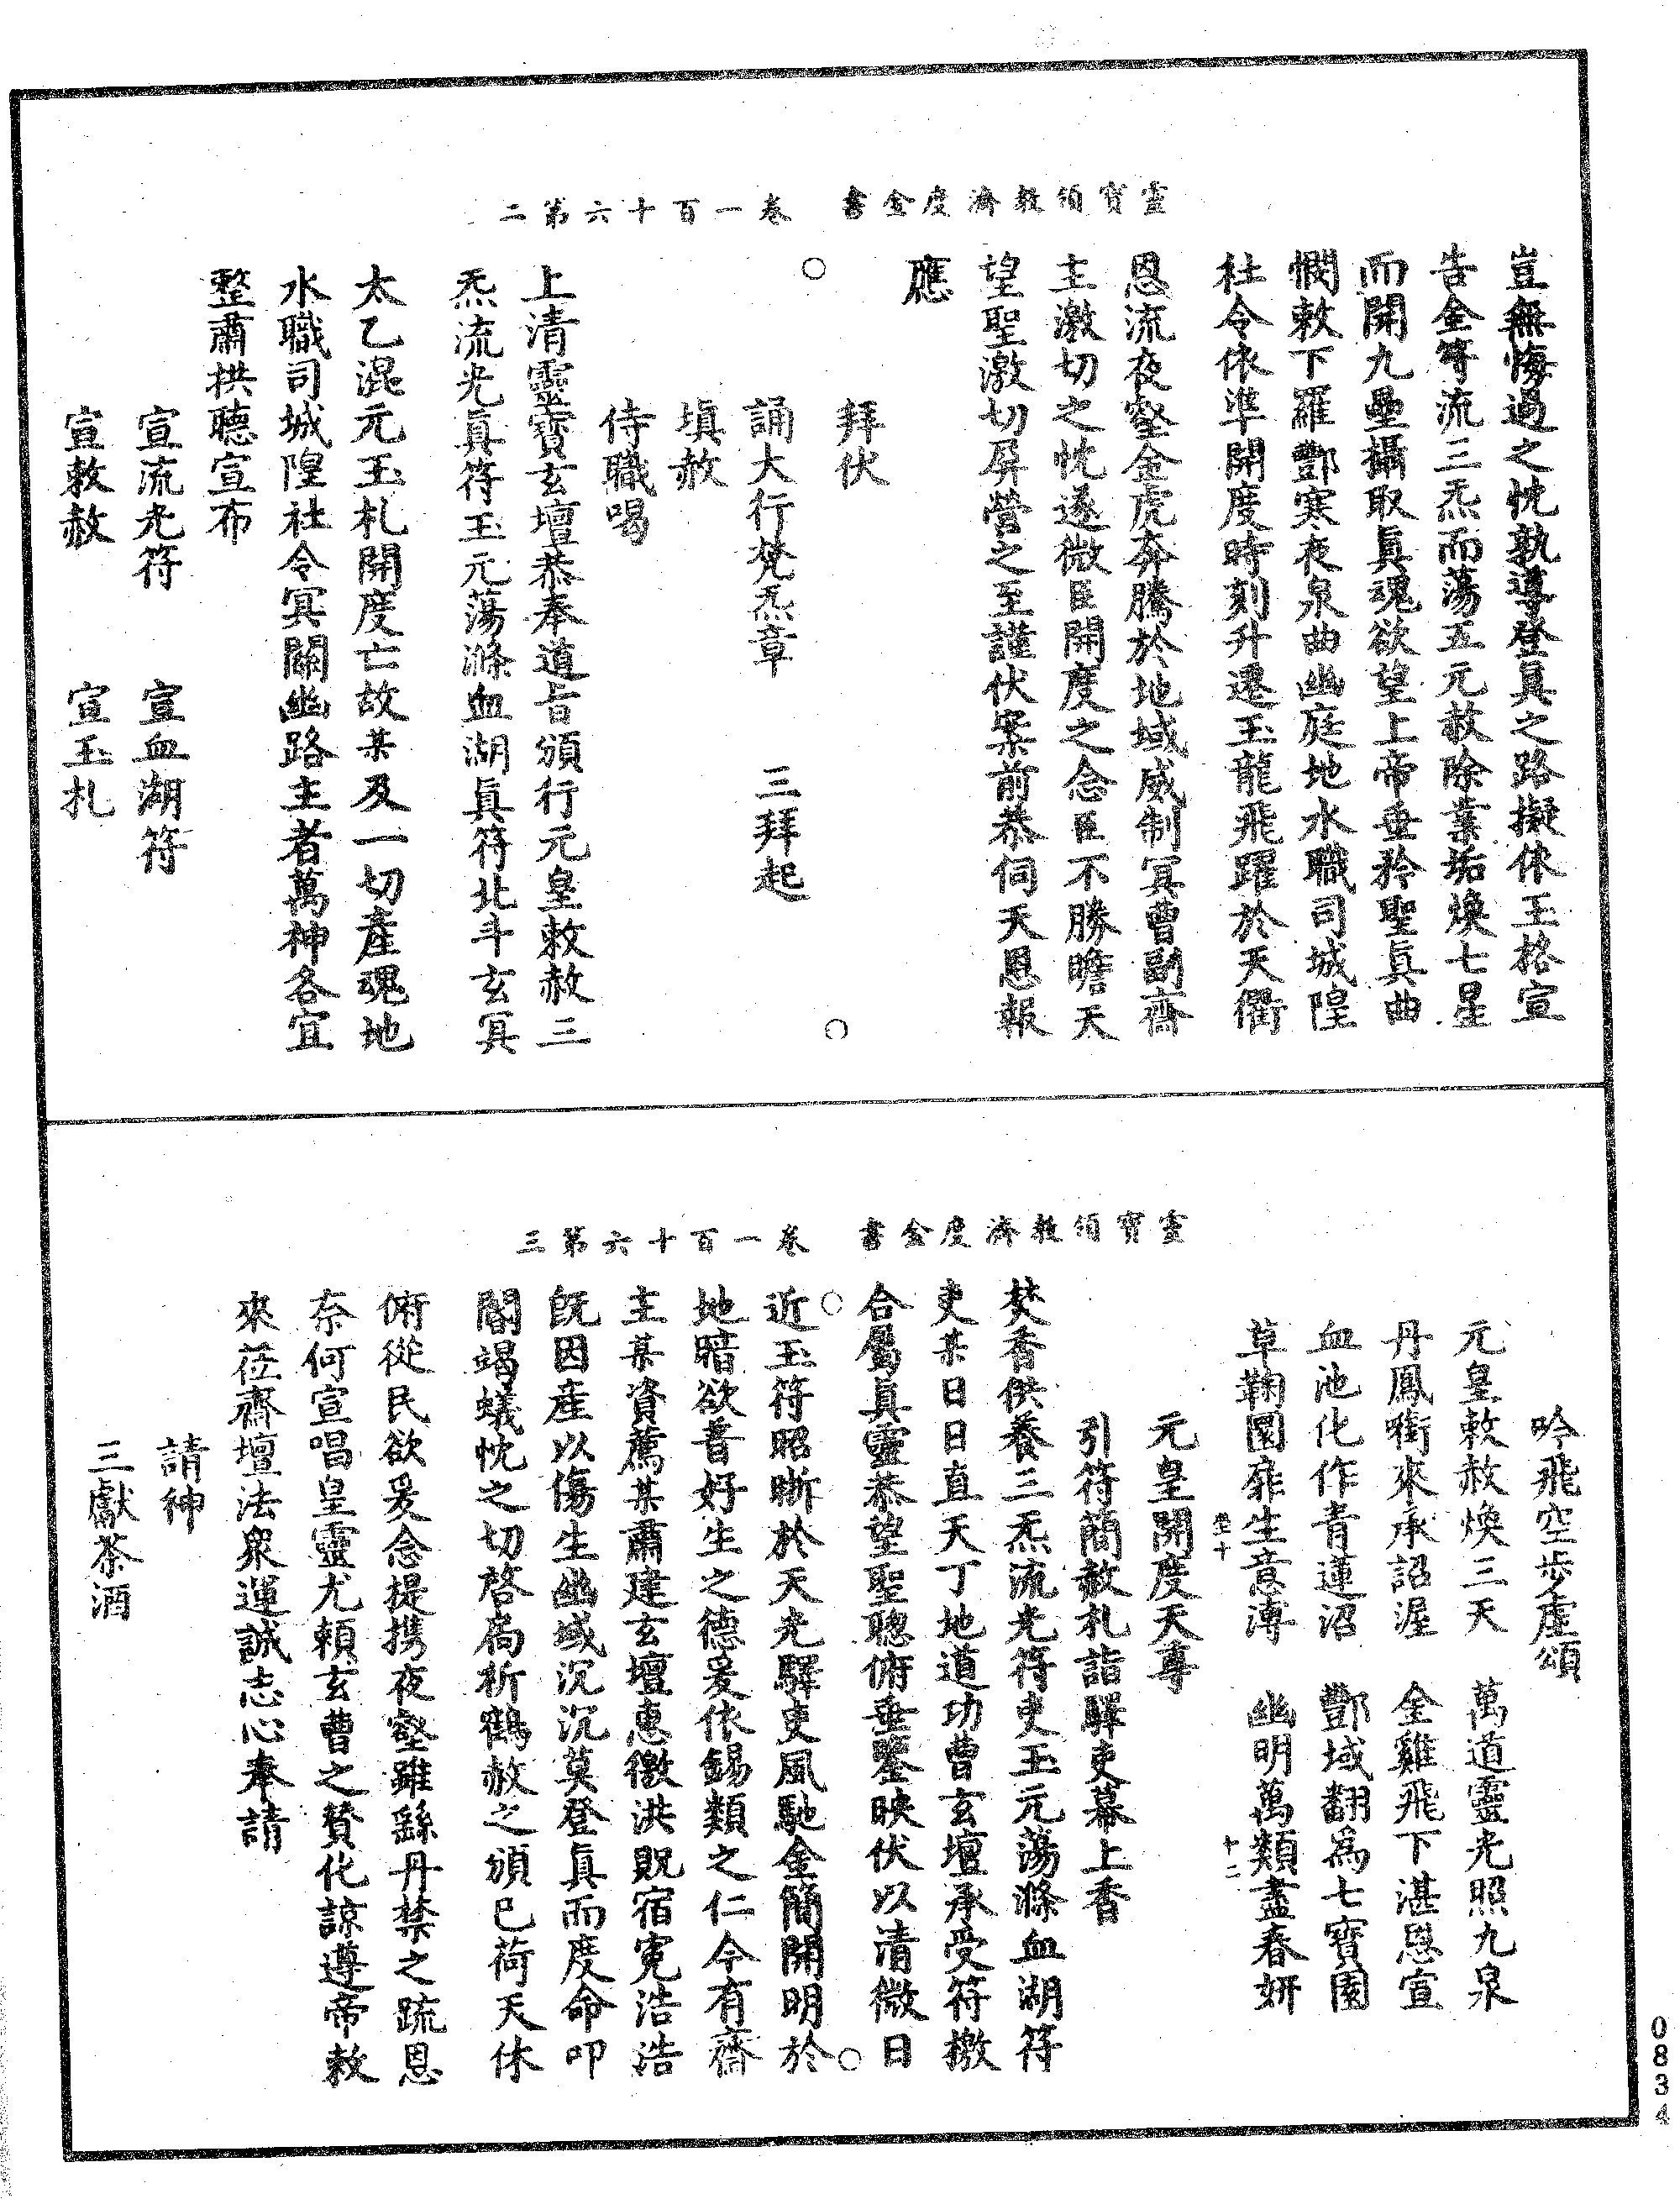 靈寶領教濟度金書　卷一百十六第二
豈無悔過之忱孰導登眞之路擬依玉格宣
告金等流三炁而蕩五元赦除業垢煥七星
而開九壘攝取眞魂欲望上帝垂矜聖眞曲
憫敕下羅酆寒夜泉曲幽庭地水職司城隍
社令依準開度時刻升遷玉龍飛躍於天衢
恩流夜壑金虎奔騰於地域威制冥曹副齋
主激切之忱遂微臣開度之念臣不勝瞻天
望聖激切屏營之至謹伏案前恭伺天恩報
應
拜伏
○誦大行梵炁章　三拜起○
填赦
侍職喝
上清靈寶玄壇恭奉道旨頒行元皇敕赦三
炁流光眞符玉元蕩滌血湖眞符北斗玄冥
太乙混元玉札開度亡故某及一切產魂地
水職司城隍社令冥關幽路主者萬神各宜
整肅拱聽宣布
宣流光符　宣血湖符
宣敕赦　宣玉札
靈寶領教濟度金書　卷一百十六第三
吟飛空步虛頌
元皇敕赦煥三天　萬道靈光照九泉
丹鳳銜來承詔渥　金雞飛下湛恩宣
血池化作青蓮沼　酆域翻爲七寶園
草鞠園扉生意溥　幽明萬類盡春妍
十二
元皇開度天尊
引符簡赦札詣驛吏幕上香
焚香供養三炁流光符吏玉元蕩滌血湖符
吏某日日直天丁地道功曹玄壇承受符檄
合屬眞靈恭望聖聰俯垂鑒映伏以清微日
○近玉符昭晣於天光驛吏風馳金簡開明於○
地暗欲普好生之德爰依錫類之仁今有齋
主某資薦某肅建玄壇惠徼洪貺宿寃浩浩
旣因產以傷生幽域沉沉莫登眞而度命叩
閽竭蟻忱之切啓扃祈鶴赦之頒已荷天休
俯從民欲爰念提携夜壑雖繇丹禁之䟽恩
奈何宣唱皇靈尤賴玄曹之贊化諒遵帝敕
來莅齋壇法衆運誠志心奉請
請神
三獻茶酒
0834